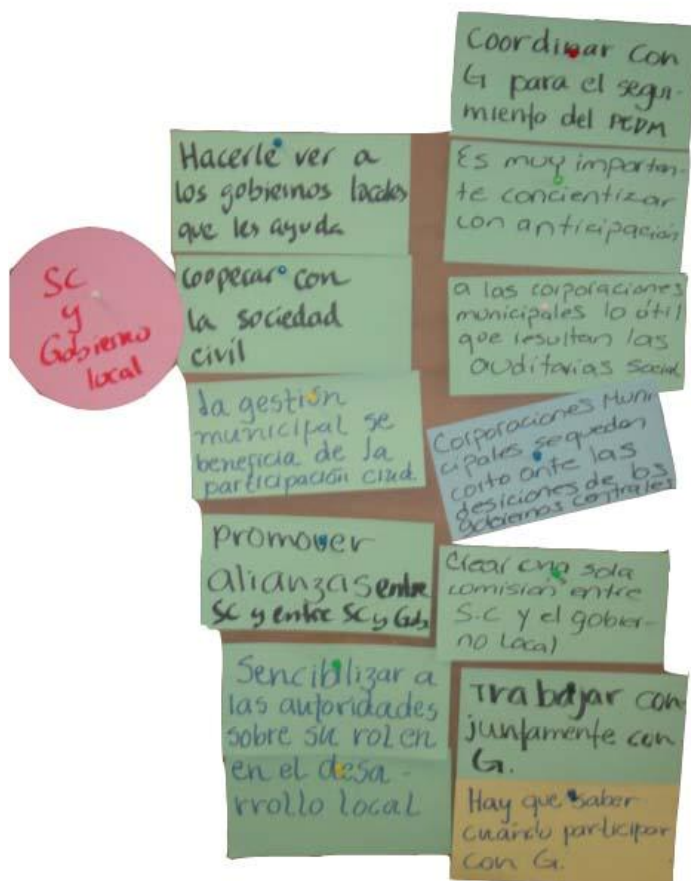 SC
y
Gobierno
local
Hacerle ver a
los gobiernos locales
que les ayuda
cooperar con
la sociedad
civil
La gestión
municipal se
beneficia de la
participación ciud.
Promover
alianzas entre
SC y entre SC y Gob
Sencibilizar a
las autoridades
sobre su rol en
en el desa-
rrollo local
Coordinar con
G para el segui-
miento del PEDM
Es muy importan-
te concientizar
con anticipación
a las corporaciones
municipales lo útil
que resultan las
auditarias social
Corporaciones Muni
cipales se quedan
corto ante las
desiciones de los
gobiernos centrales
Crear una sola
comisión entre
S.C y el gobier-
no local
Trabajar con
juntamente con
G.
Hay que saber
cuándo participar
con G.